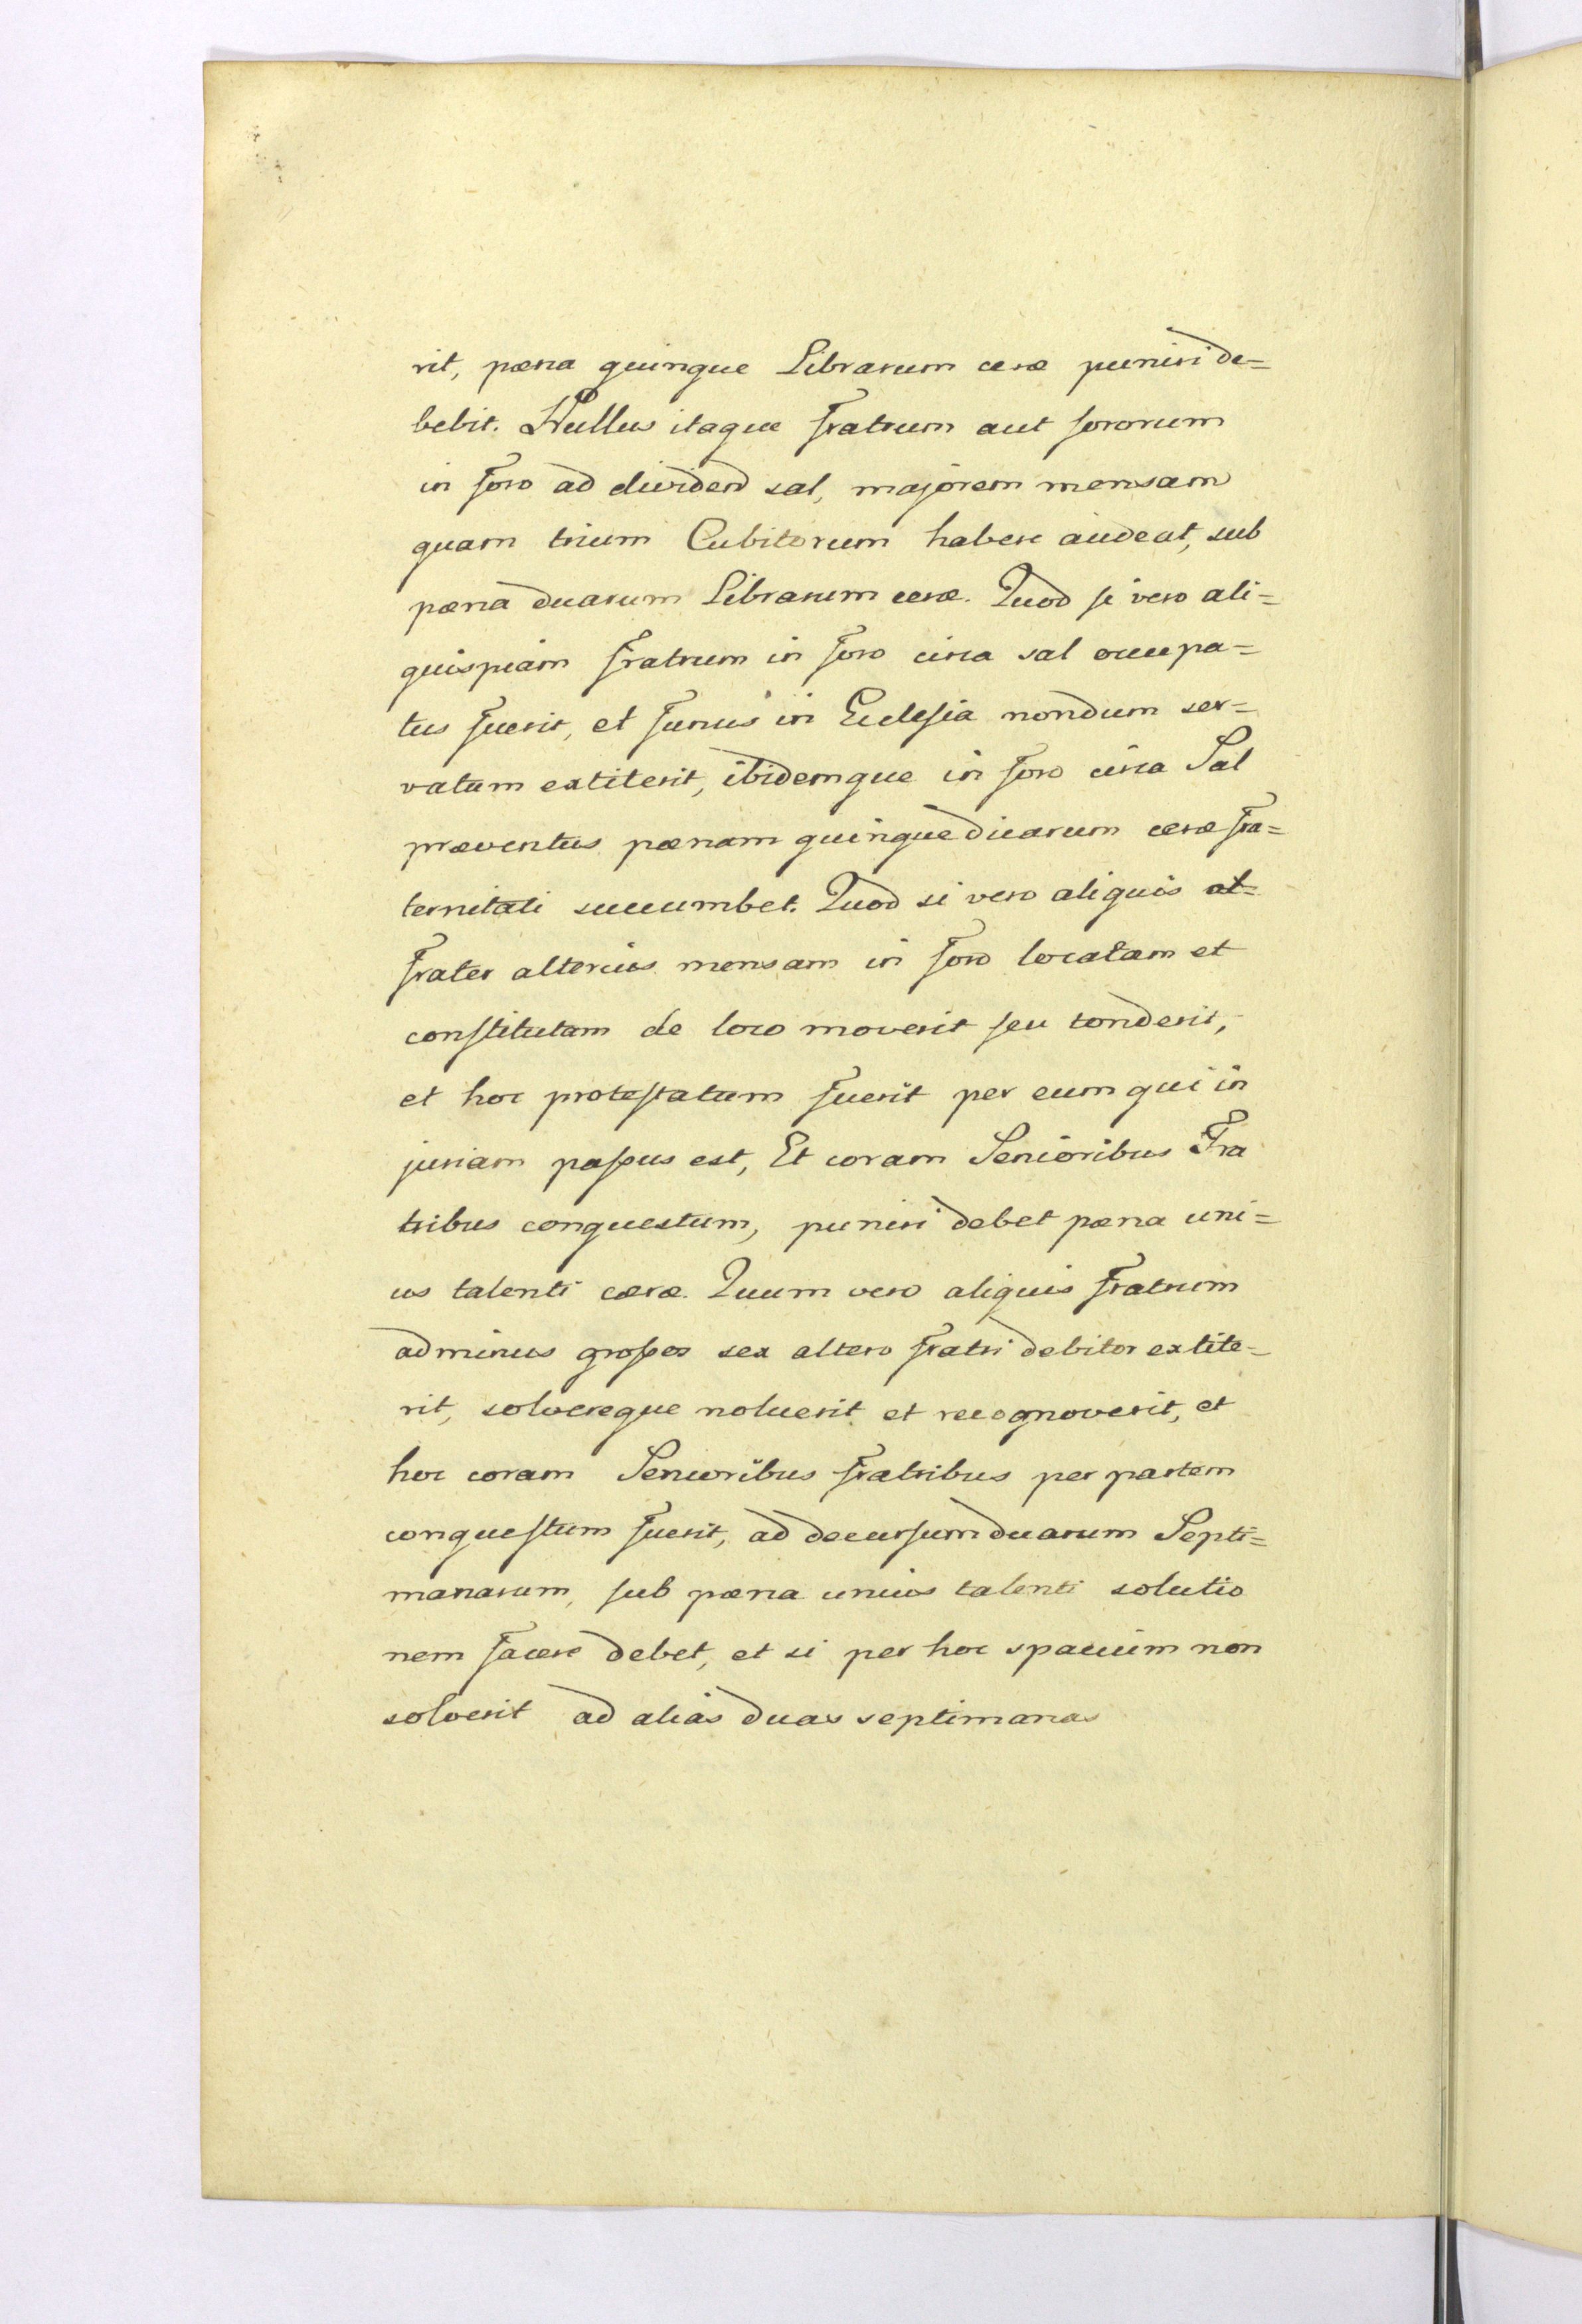 rit, pæna quinque Librarum ceræ puniri de=
bebit. Nullus itaque fratrum aut sororum
in foro ad dividend sal, majorem mensam
quam trium Cubitorum habere audeat, sub
pæna duarum Librarum ceræ. Quod si vero ali=
quispiam fratrum in foro circa sal occupa=
tus fuerit, et funus in Ecclesia nondum ser=
vatum extiterit, ibidemque in foro circa Sal
præventus pænam quinque dicarum ceræ fra=
ternitati succumbet. Quod si vero aliquis al=
frater alterius mensam in foro locatam et
constitutam de loco moverit seu tonderit,
et hoc protestatum fuerit per eum qui in
juriam passus est, Et coram Senioribus Fra
tribus conquestum, puniri debet pæna uni=
us talenti ceræ. Quum vero aliquis fratrum
ad minus grosses sex altero fratri debitor extite=
rit, solvereque noluerit et recognoverit, et
hoc coram Senioribus fratribus per partem
conquestum fuerit, ad decursum duarum Septi=
manarum, sub pæna unius talenti solutio
nem facere debet, et si per hoc spacium non
solverit ad alias duas septimanas